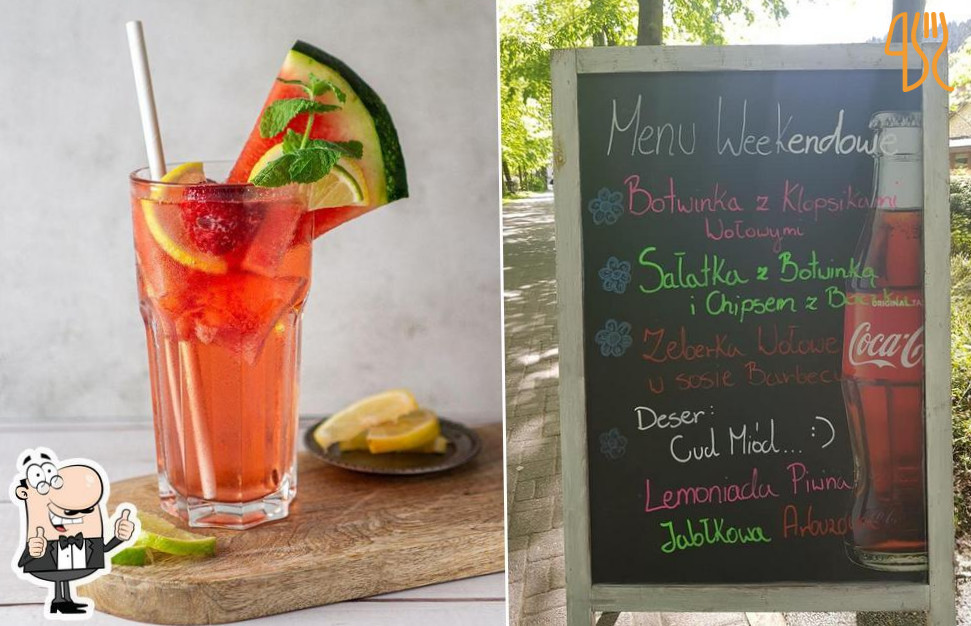 Menu Weekendowe
Botwinka z Klopsikami
Wołowymi
Sałatka z Botwinką
i Chipsem z
Żeberka Wołowe
w sosie Barbecu
Deser:
Cud Miód... :)
Lemoniada Piwna
Jabłkowa Arbuzowa
ORIGINAL TA
Coca-C